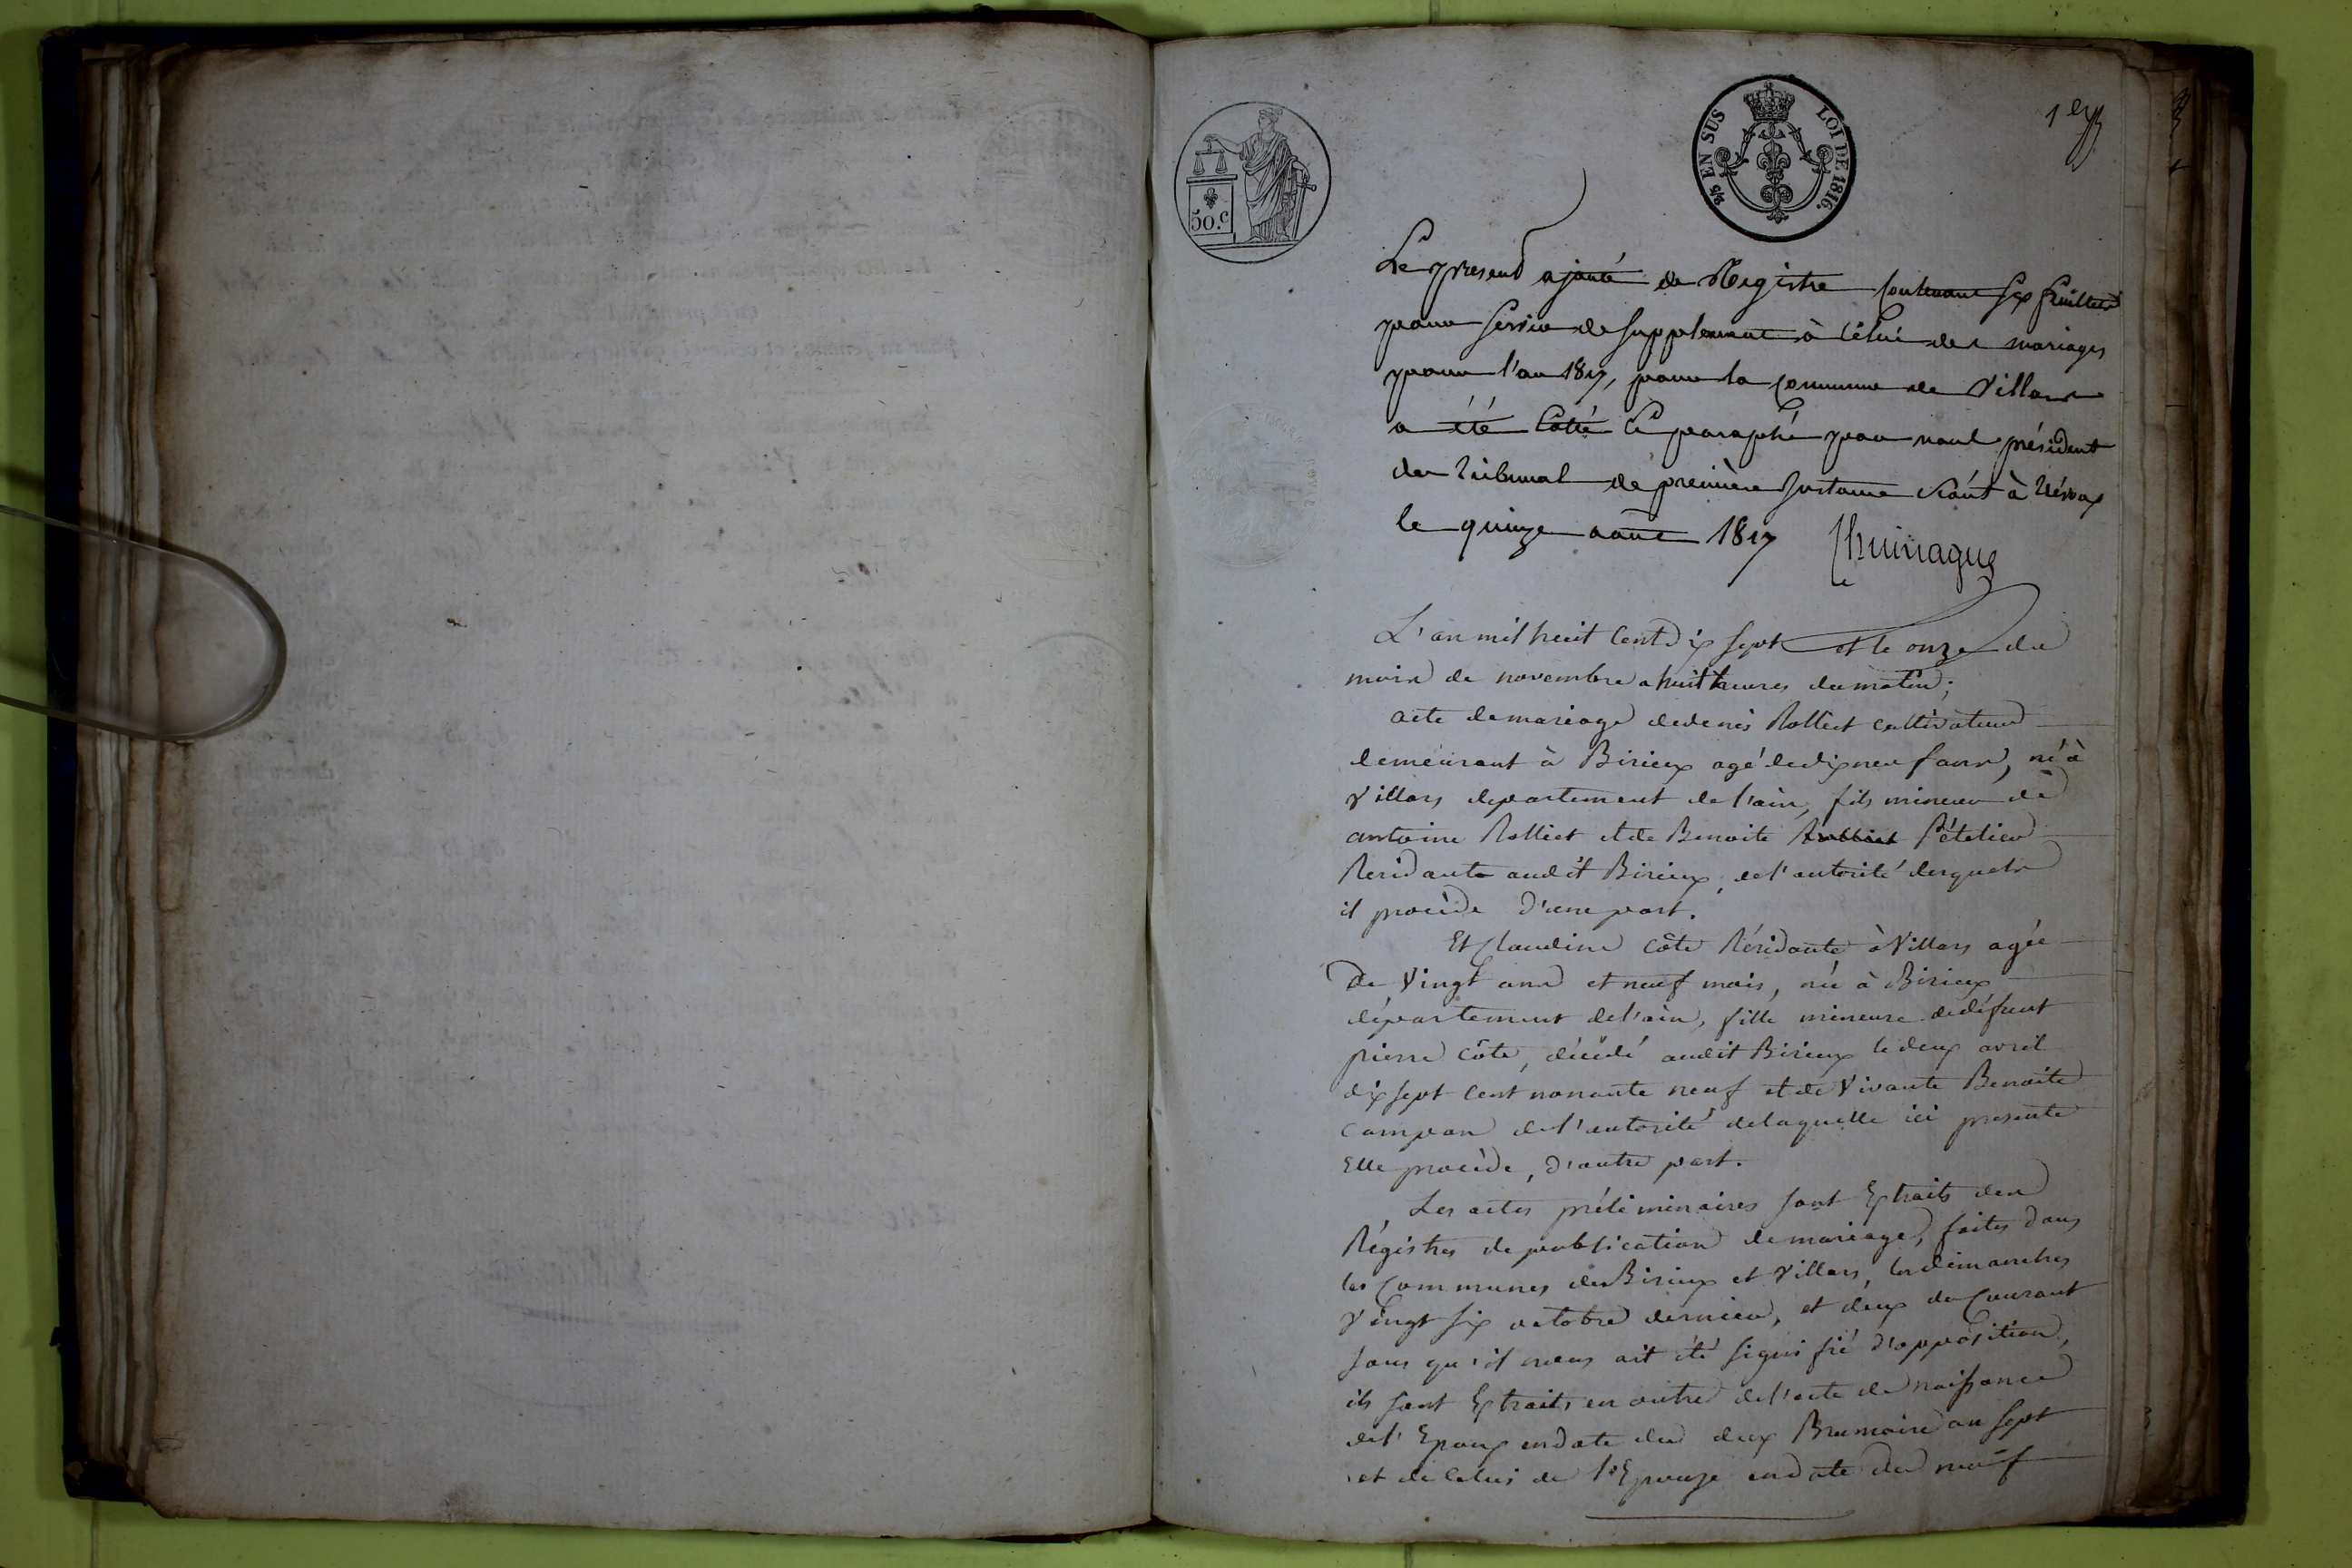 1er
50.c
5/10 EN SUS LOI DE 1816.
Le présent ajouté de Registre contenant six feuillets
pour servir de supplément à celui des mariages
pour l'an 1817, pour la commune de Villars
a été Cotté et paraphé par nous président
du Tribunal de première Instance séant à Trévoux
le quinze aout 1817
L'an mil huit Cent dix sept et le onze du
mois de novembre a huit heures du matin;
acte de mariage de denis Rolliet cultivateur
demeurant à Birieux agé de dix neuf ans, né à
Villars departement de l'ain, fils mineur de
antoine Rolliet et de Benoite Pételier
Residants audit Birieux, de l'autorité desquels
il procède d'une part.
Et Claudine Côte Résidante à Villars agée
De Vingt ans et neuf mois, née à Birieux
département de l'ain, fille mineure de défunt
pierre Côte, décédé audit Birieux le deux avril
dix sept cent nonante neuf et de Vivante Benoite
Campan de l'autorité de laquelle ici presente
Elle procède, d'autre part.
Les actes préliminaires sont Extraits des
Régistres de publication de mariage, faites dans
les Communes de Birieux et Villars, les dimanches
Vingt six octobre dernier, et deux du Courant
sans qu'il nous ait été signifié d'opposition,
ils sont Extraits en outre de l'acte de naissance
de l'Epoux en date du deux Brumaire an sept
et de Celui de l'Epouze en date du neuf